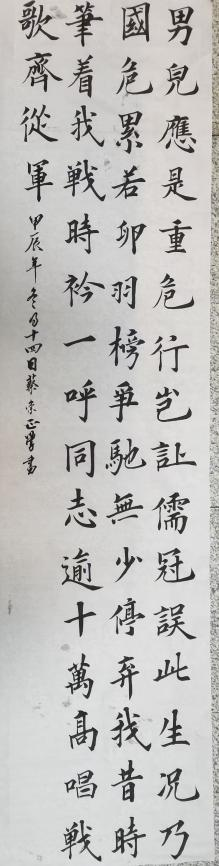 男兒應是重危行豈讓儒冠誤此生況乃
國危累若卵羽檄爭馳無少停弃我昔時
筆着我戰時衿一呼同志逾十萬高唱戰
歌齊從軍
甲辰年冬月十四日蔡